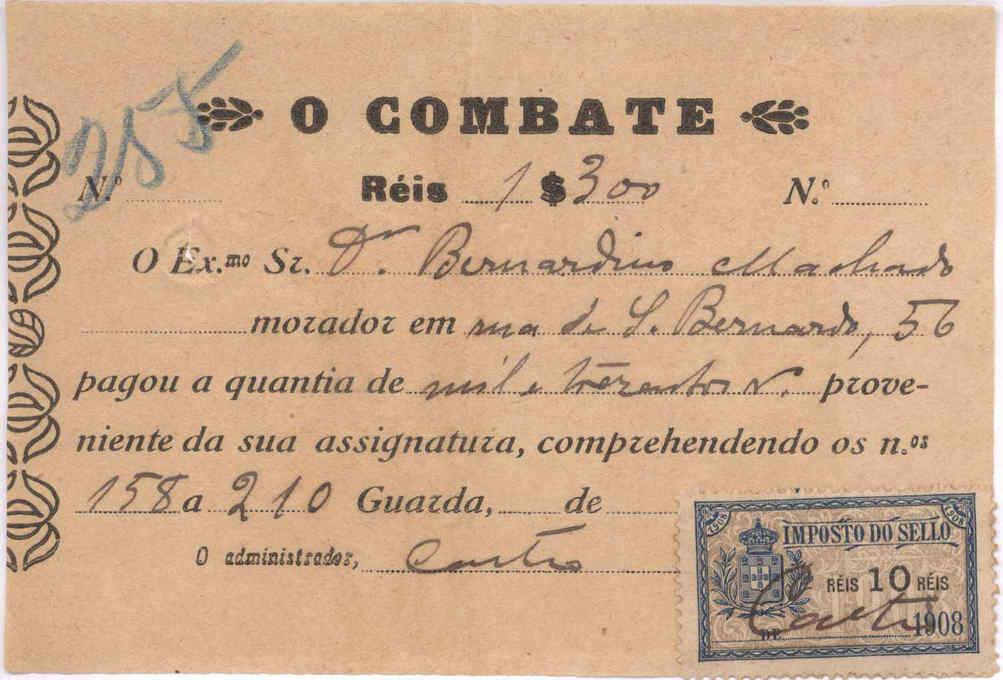 255
O COMBATE
N.º Réis 1$300 N.º
O Ex.mo Sr. Dr Bernardino Machado
morador em rua de S. Bernardo, 56
pagou a quantia de mil e trezentos r. prove-
niente da sua assignatura, comprehendendo os n.os
158 a 210 Guarda, de
O administrador, Castro
1908 1908
IMPOSTO DO SELLO
RÉIS 10 RÉIS
Castro
DE 1908